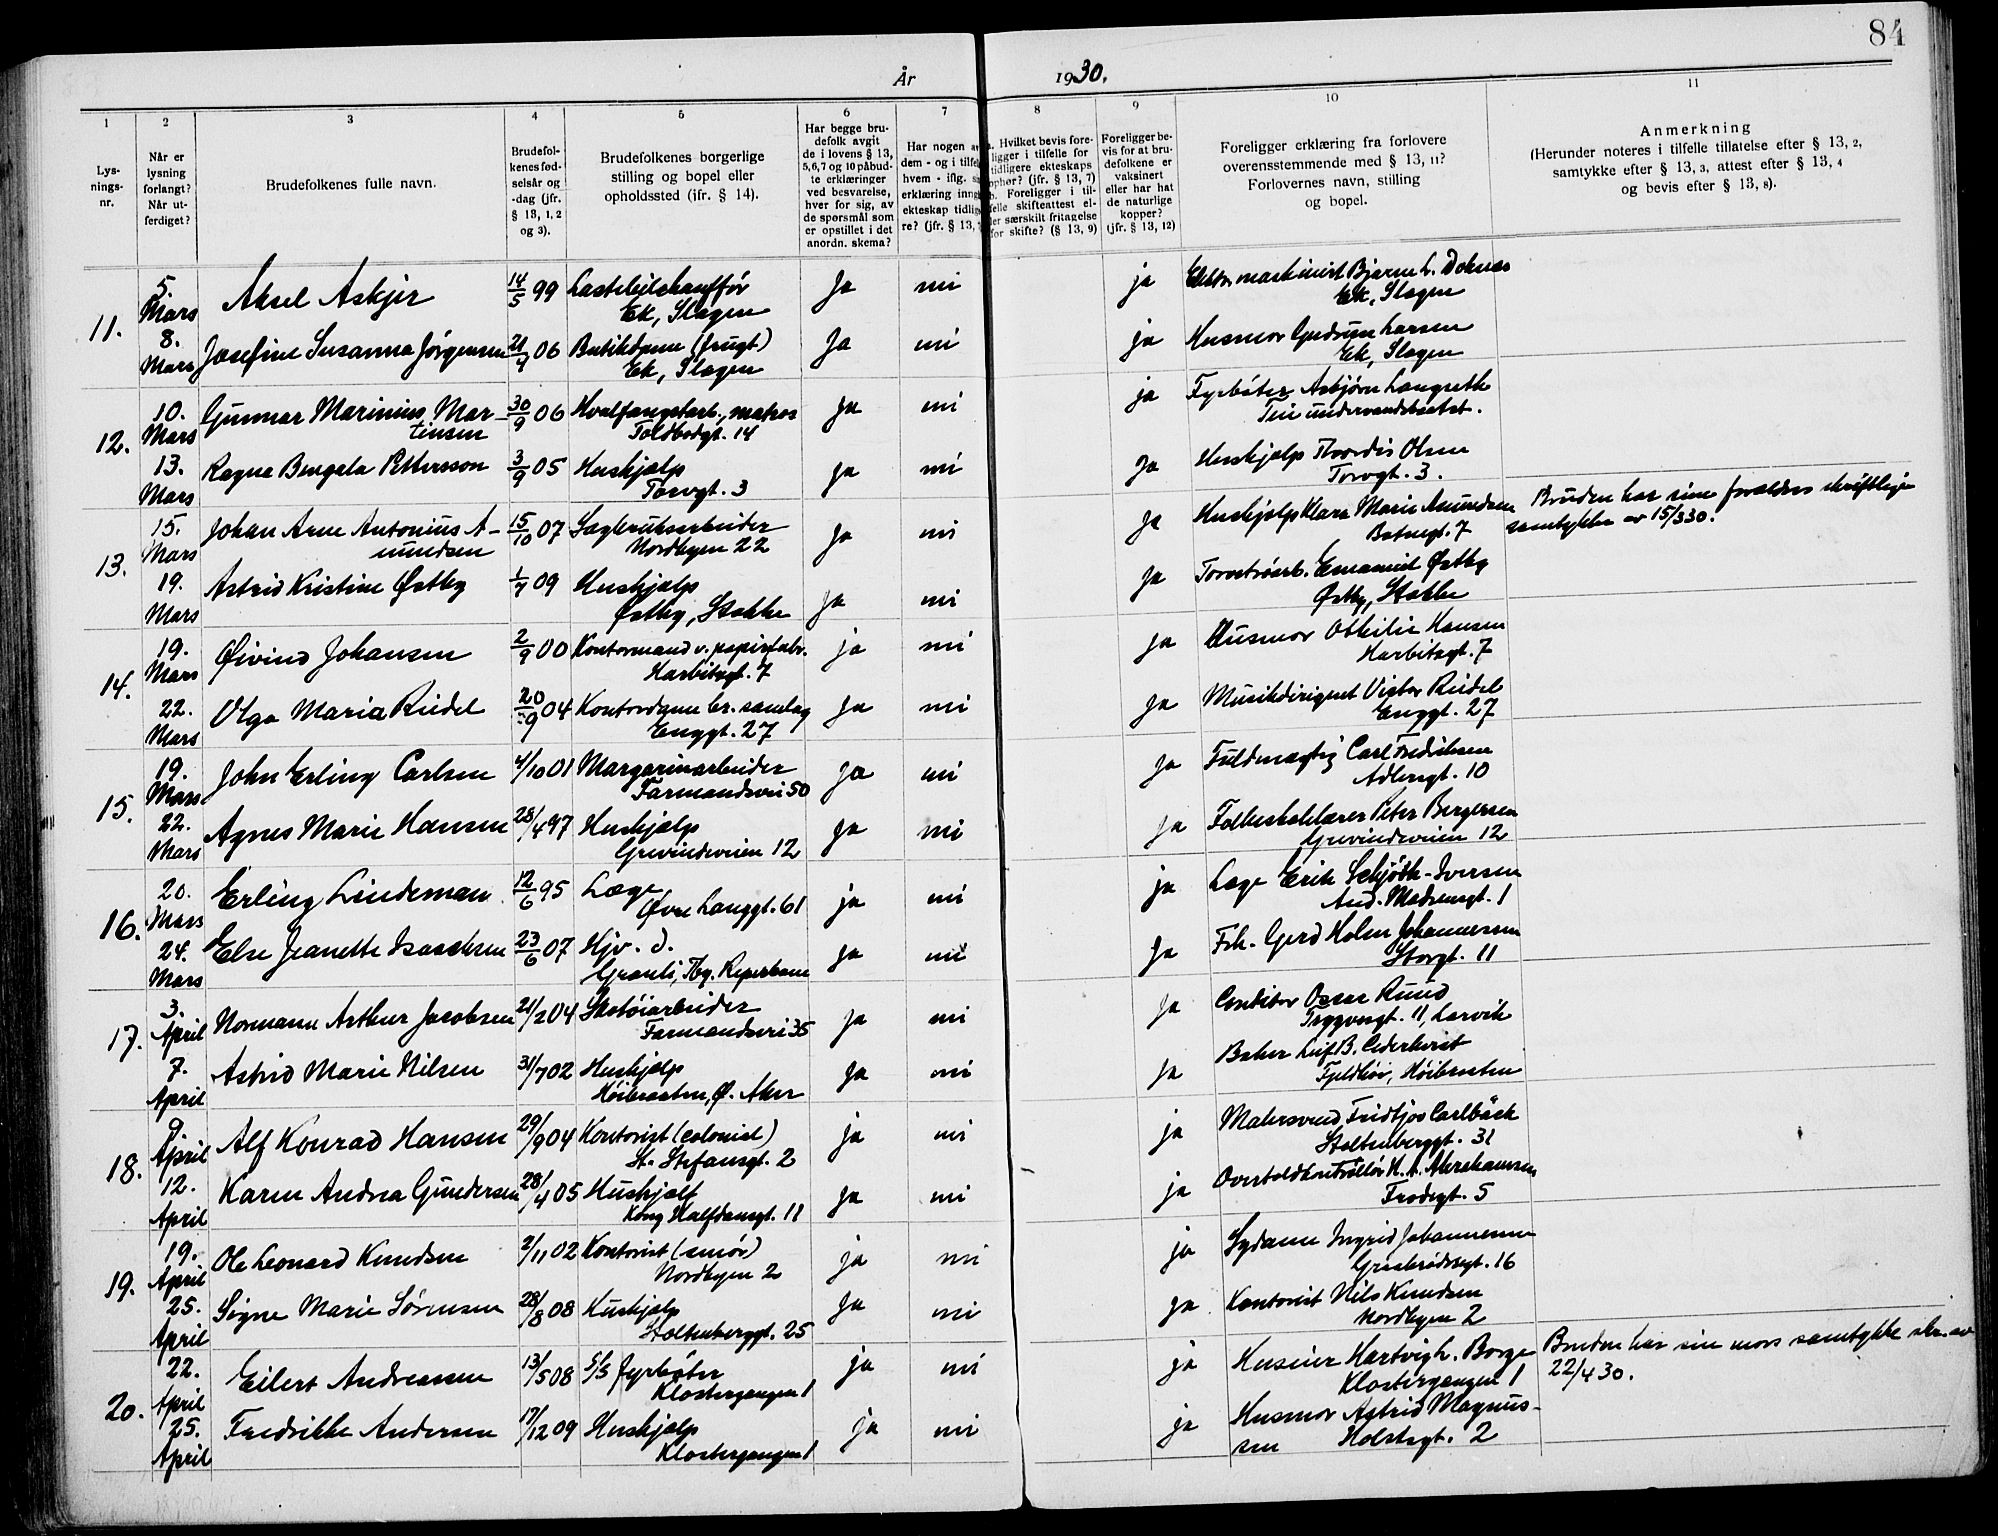 84
År 1930.
1 2 3 4 5 6 7 8 9 10 11
Lys-
nings-
nr.
Når er
lysning
forlangt?
Når ut-
ferdiget?
Brudefolkenes fulle navn.
Brudefol-
kenes fød-
selsår og
-dag (jfr.
§ 13, 1, 2
og 3).
Brudefolkenes borgerlige
stilling og bopel eller
opholdssted (jfr. § 14).
Har begge bru-
defolk avgit
de i lovens § 13,
5,6,7 og 10 påbud-
te erklæringer
ved besvarelse,
hver for sig, av
de spørsmål som
er opstillet i det
anordn. skema?
Har nogen av
dem - og i tilfelle
hvem - iflg.
erklæring inngått
ekteskap tidlige-
re? (jfr. § 13,
a. Hvilket bevis fore-
ligger i tilfelle for
tidligere ekteskaps
ophør? (jfr. § 13, 7)
b. Foreligger i til-
felle skifteattest el-
ler særskilt fritagelse
for skifte? (§ 13, 9)
Foreligger be-
vis for at bru-
defolkene er
vaksinert
eller har hat
de naturlige
kopper?
(jfr. § 13, 12)
Foreligger erklæring fra forlovere
overensstemmende med § 13, 11?
Forlovernes navn, stilling
og bopel.
Anmerkning
(Herunder noteres i tilfelle tillatelse efter § 13, 2,
samtykke efter § 13, 3, attest efter § 13, 4
og bevis efter § 13, 8).
11.
5. Mars Aksel Askjer 14/5 99 Lastebilchauffør Ja nei ja Elektr. maskinist Bjarne L.
Ek, Slagen Ek, Slagen
8. Mars Josefine Susanna Jørgensen 06 Butikdame (frugt) Ja nei ja Husmor Gudrun Larsen
Ek, Slagen Ek, Slagen
12.
10. Mars Gunnar Marinius Mar- 30/9 06 Hvalfangstarb., matros ja nei ja Fyrbøter Asbjørn Langseth
tinsen Toldbodgt. 14 Teie undervandsbaatst.
13. Mars Ragna Bengela Pettersson 3/9 05 Hushjælp ja nei ja Hushjælp Thordis Olsen
Torvgt. 3 Torvgt. 3.
13.
15. Mars Johan Arne Antonius A- 15/10 07 Sagbruksarbeider ja nei ja Hushjælp Klara Marie Amundsen Bruden har sine forældres skriftlige
mundsen Nordbyen 22 7 samtykke av 15/3 30.
19. Mars Astrid Kristine Østby 1/7 09 Hushjælp ja nei ja Torvstrøarb. Emanuel Østby
Østby, Stokke Østby, Stokke
14.
19. Mars Øivind Johansen 2/9 00 Kontormand v. papirfabr. ja nei ja Husmor Othilie Hansen
Harbitzgt. 7 Harbitzgt. 7
22. Mars Olga Maria Riedel 20/9 04 Kontordame br. samlag ja nei ja Musikdirigent Victor Riedel
Enggt. 27 Enggt. 27
15.
19. Mars John Erling Carlsen 4/10 01 Margarinarbeider ja nei ja Fuldmægtig Carl Fredriksen
Farmandsvei 50 10
22. Mars Agnes Marie Hansen 28/4 97 Hushjælp ja nei ja Folkeskolelærer Peter Bergersen
Grevindeveien 12 Grevindeveien 12
16.
20. Mars Erling Lindeman 12/6 95 Læge ja nei ja Læge Erik Schjöth-Iversen
Øvre Langgt. 61 And. Madsensgt. 1
24. Mars Else Jeanette Isachsen 23/6 07 Hjv. d. ja nei ja Frk. Gerd Helen Johannessen
Granli, Tbg. Reperbane Storgt. 11
17.
3. April Normann Arthur Jacobsen 21/2 04 Skotøiarbeider ja nei ja Conditor Oscar Ruud
Farmandsvei 35 Tryggvesgt. 11, Larvik
7. April Astrid Marie Nilsen 31/7 02 Hushjælp ja nei ja Baker Leif B. Cederkvist
Høibraaten, Ø. Aker Høibraaten
18.
9. April Alf Konrad Hansen 29/9 04 Kontorist (colonial) ja nei ja Malersvend Fridtjov Carlbäck
St. Stefansgt. 2 Stoltenberggt. 31
12. April Karen Andrea Gundersen 28/4 05 Hushjælp ja nei ja Overtoldkontrollør H. A. Abrahamsen
Kong Halfdansgt. 11 Frodegt. 5
19.
19. April Ole Leonard Knudsen 2/11 02 Kontorist (smør) ja nei ja Sydame Ingrid Johannessen
Nordbyen 2 Graabrødregt. 16
25. April Signe Marie Sørensen 28/8 08 Hushjælp ja nei ja Kontorist Nils Knudsen
Stoltenberggt. 25 Nordbyen 2
20.
22. April Eilert Andreassen 13/5 08 S/S fyrbøter ja nei ja Huseier Hartvig L. Borge Bruden har sin mors samtykke skr. av
Klostergangen 1 Klostergangen 1 22/4 30.
25. April Fredrikke Andersen 17/12 09 Hushjælp ja nei ja Husmor Astrid Magnus-
Klostergangen 1 sen Holstsgt. 2